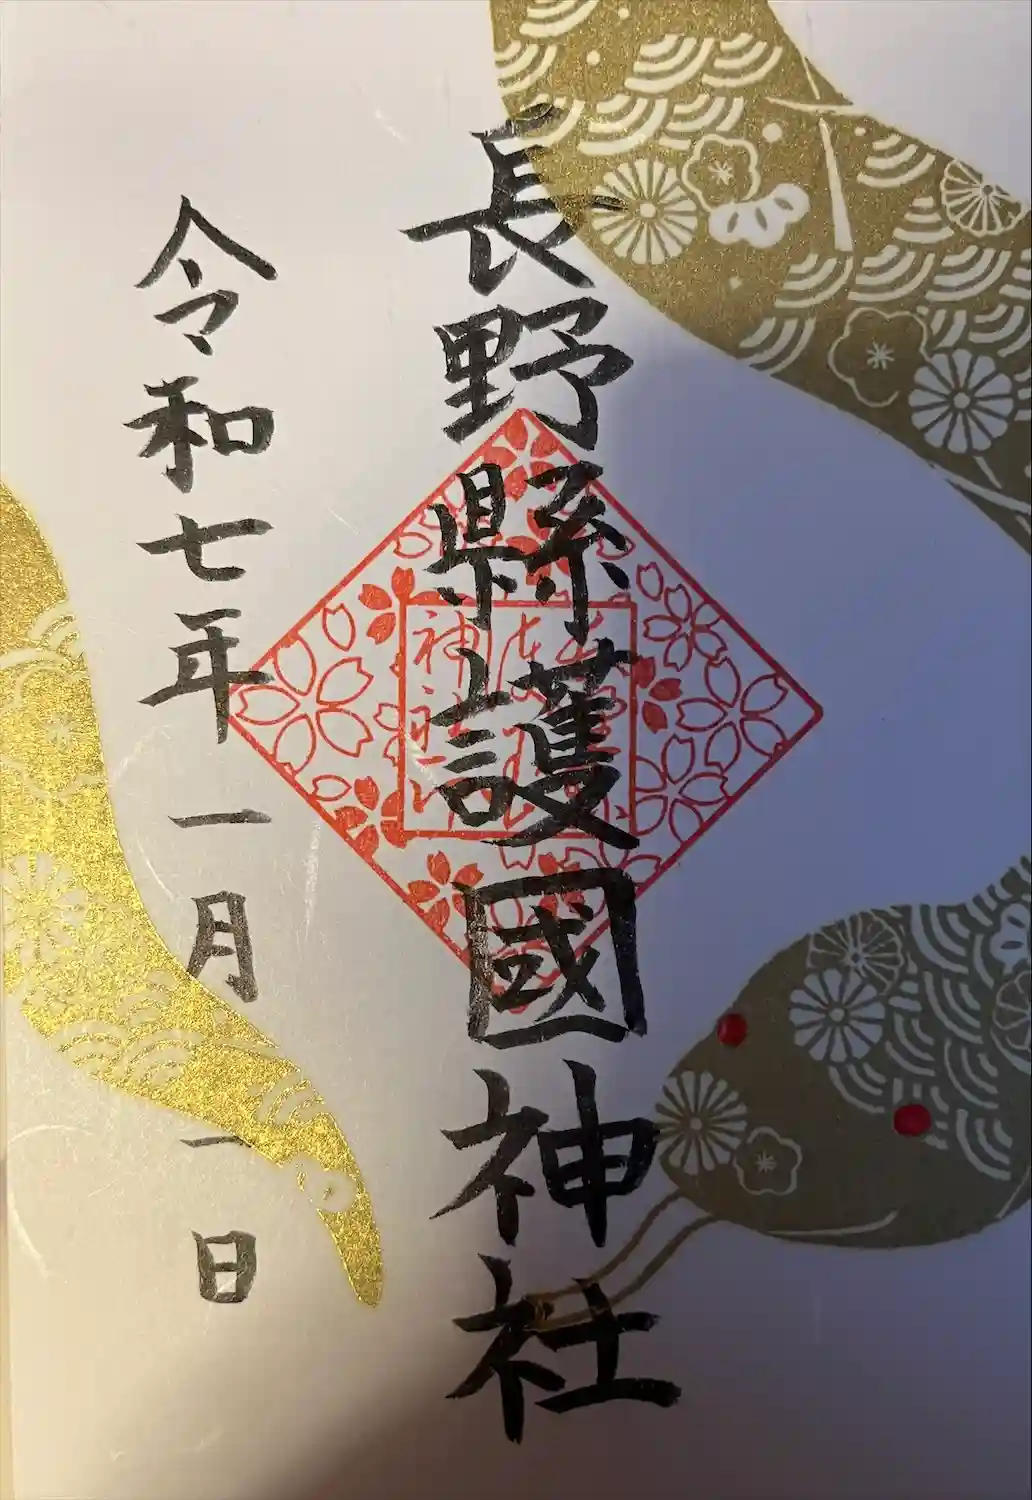 長野縣護國神社
令和七年一月一日